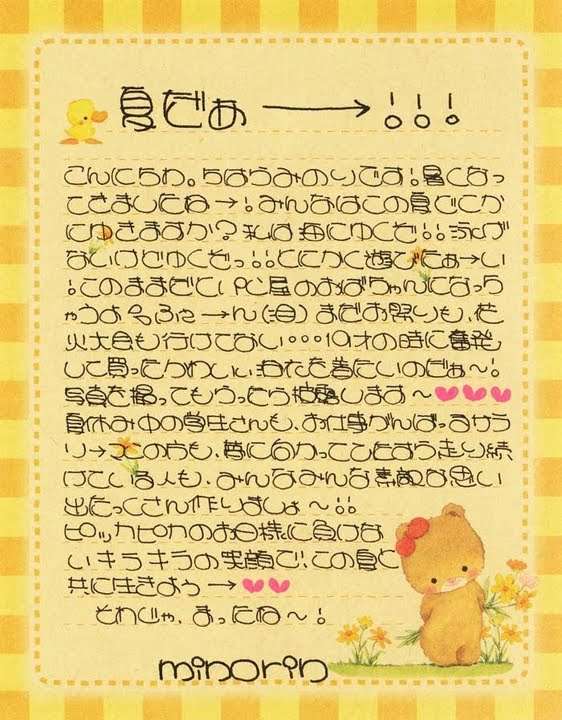 夏だぁ→!!!
こんにちわ。ちはらみのりです!暑くなっ
てきましたね→!みんなはこの夏どこか
にゆきますか?私は海にゆくぞ!!泳げ
ないけどゆくぞっ!!とにかく遊びたぁ→い
!このままだとPC屋のおばちゃんになっち
ゃうよぅふえ→ん(泣)まだお祭りも、花
火大会も行けてない…19才の時に奮発
して買ったかわいいゆかたを着たいのだぁ~!
写真を撮ってもらったら披露します~♥♥♥
夏休み中の学生さんも、お仕事がんばってるサラ
リ→マンの方も、夢に向かってひたすら走り続
けている人も、みんなみんな素敵な思い
出たっくさん作りましょ~!!
ピッカピカのお日様に負けな
いキラキラの笑顔で、この夏と
共に生きよう→♥♥
それじゃ、まったね~!
minorin